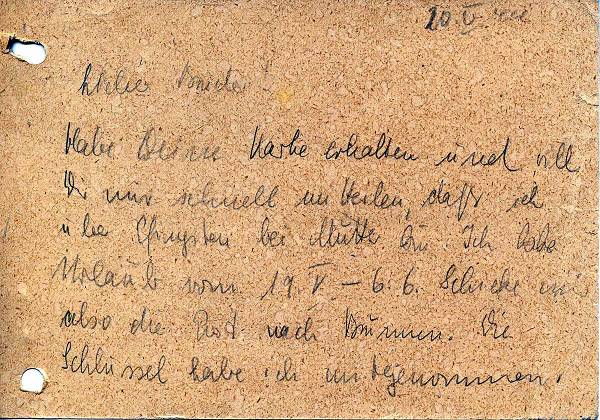 20 V 44
Lieber Bruder!
Habe Deine Karte erhalten und will
Dir nur schnell mitteilen, daß ich
über Pfingsten bei Mutter bin. Ich habe
Urlaub vom 19. V – 6. 6. Schicke mir
also die Post nach Brunnen. Die
Schlüssel habe ich mitgenommen.